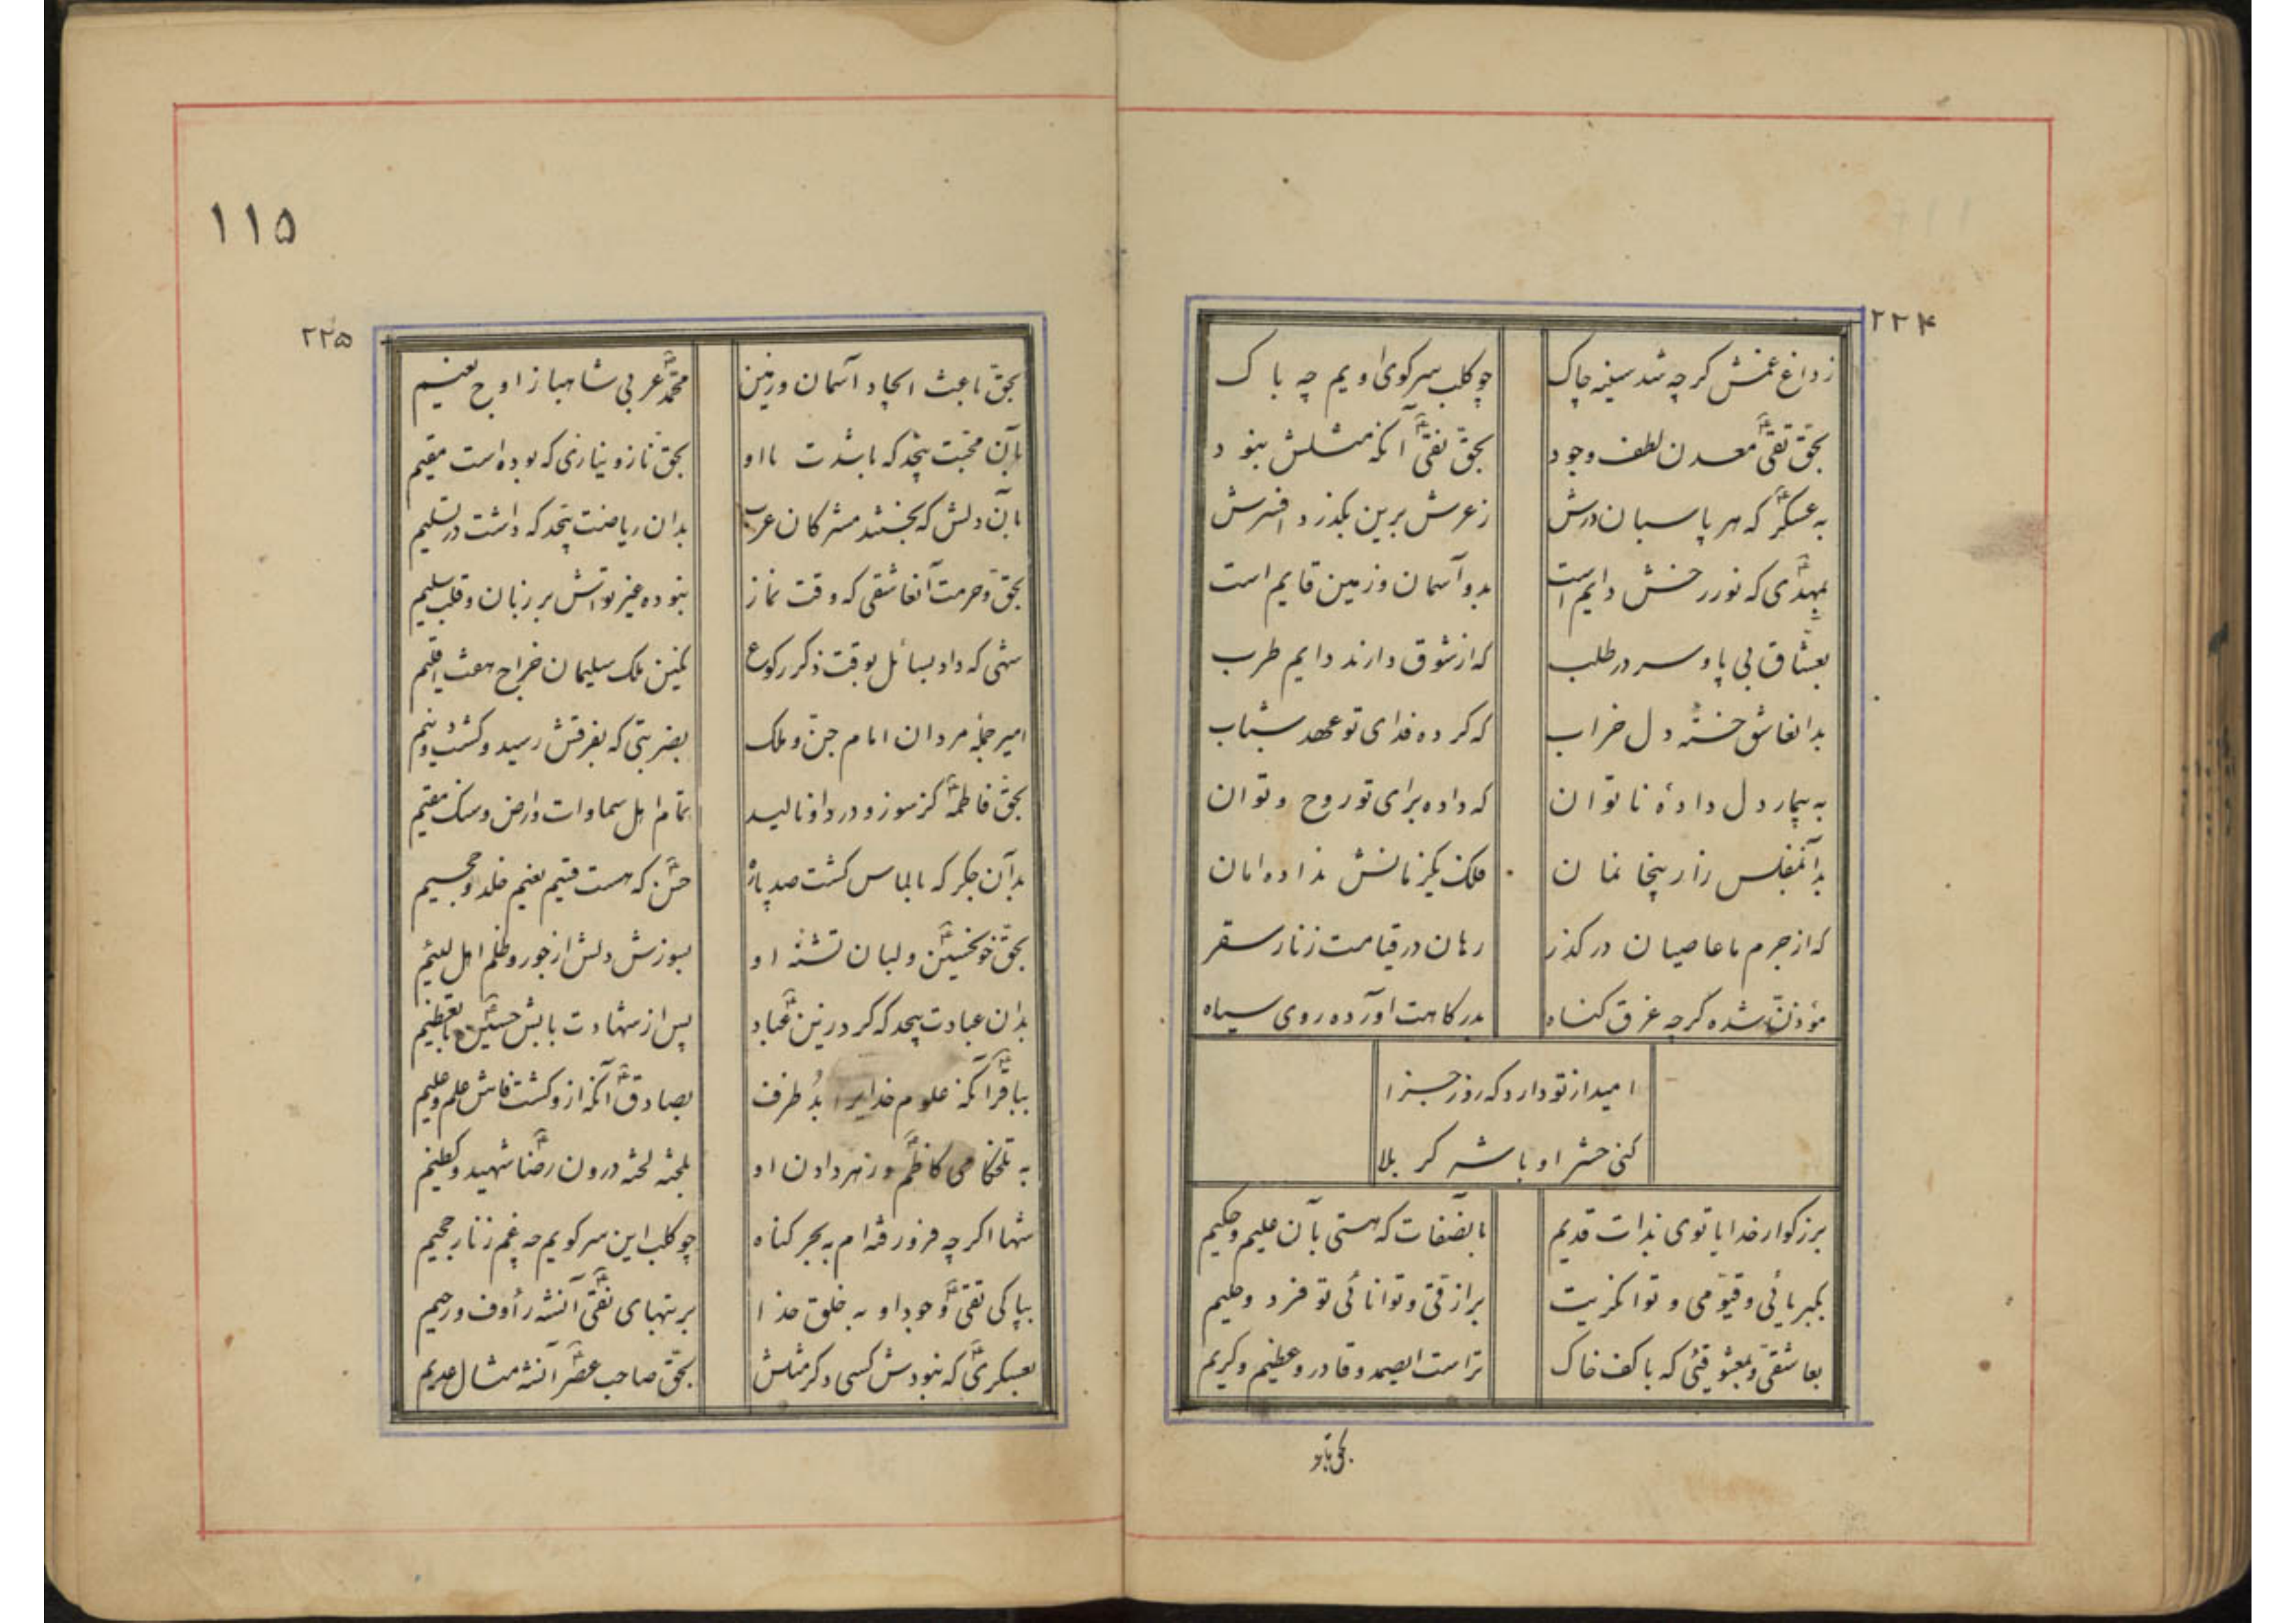 ۲۲۴
ز داغ غمش گرچه شد سینه چاک چو کلب سر کوی اویم چه باک
بحق تقی معدن لطف وجود بحق نقی آنکه مثلش نبود
به عسکر که هر پاسبان درش ز عرش برین بگذرد افسرش
بمهدی که نور رخش دایم است بدو آسمان و زمین قایم است
بعشاق بی پا و سر در طلب که از شوق دارند دایم طرب
بدانعاشق خسته دل خراب که کرده فدای تو عهد شباب
به بیمار دل دادهٔ ناتوان که داده برای تو روح و توان
بدآنمفلس زار بیخانمان فلک یکزمانش نداده امان
که از جرم ما عاصیان درگذر رهان در قیامت ز نار سقر
مؤذن شده گرچه غرق گناه بدرگاهت آورده روی سیاه
امید از تو دارد که روز جزا
کنی حشر او با شه کربلا
بزرگوار خدایا توی بذات قدیم بانصفات که هستی بآن علیم و حکیم
بکبریائی و قیومی و توانگریت برازقی و توانائی تو فرد و حلیم
بعاشقی و بمعشوقیئی که با کف خاک تراست ایصمد و قادر و عظیم و کریم
بحق باعث
۱۱۵
۲۲۵
بحق باعث ایجاد آسمان و زمین محمد عربی شاهباز اوج نعیم
بآن محبت بیحد که باشدت با او بحق ناز و نیازی که بوده است مقیم
بآن دلش که بخستند مشرکان عرب بدان ریاضت بیحد که داشت در تسلیم
بحق و حرمت آنعاشقی که وقت نماز نبوده غیر تواش بر زبان و قلب سلیم
شهی که داد بسائل بوقت ذکر رکوع نگین ملک سلیمان خراج هفت اقلیم
امیر جمله مردان امام جن و ملک بضربتی که بفرقش رسید و گشت دو نیم
بحق فاطمه کز سوز و درد او نالید تمام اهل سماوات و ارض و سنگ مقیم
بدآن جگر که بالماس گشت صد پاره حسن که هست قسیم نعیم خلد و جحیم
بحق خونحسین و لبان تشنه او بسوزش دلش از جور و ظلم اهل لئیم
بدان عبادت بیحد که کرد زین عباد پس از شهادت بابش حسین با تعظیم
بباقر آنکه علوم خدایرا بد ظرف بصادق آنکه ازو گشت فاش علم و علیم
به تلخکامی کاظم و زهر دادن او بلخته لخته درون رضا شهید و کظیم
شها اگرچه فرو رفته‌ام به بحر گناه چو کلب این سر کویم چه غم ز نار جحیم
بپاکی تقی و جود او به خلق خدا برتبهای نقی آنشه رؤف و رحیم
بعسکری که نبودش کسی دگر مثلش بحق صاحب عصر آنشه مثال عدیم